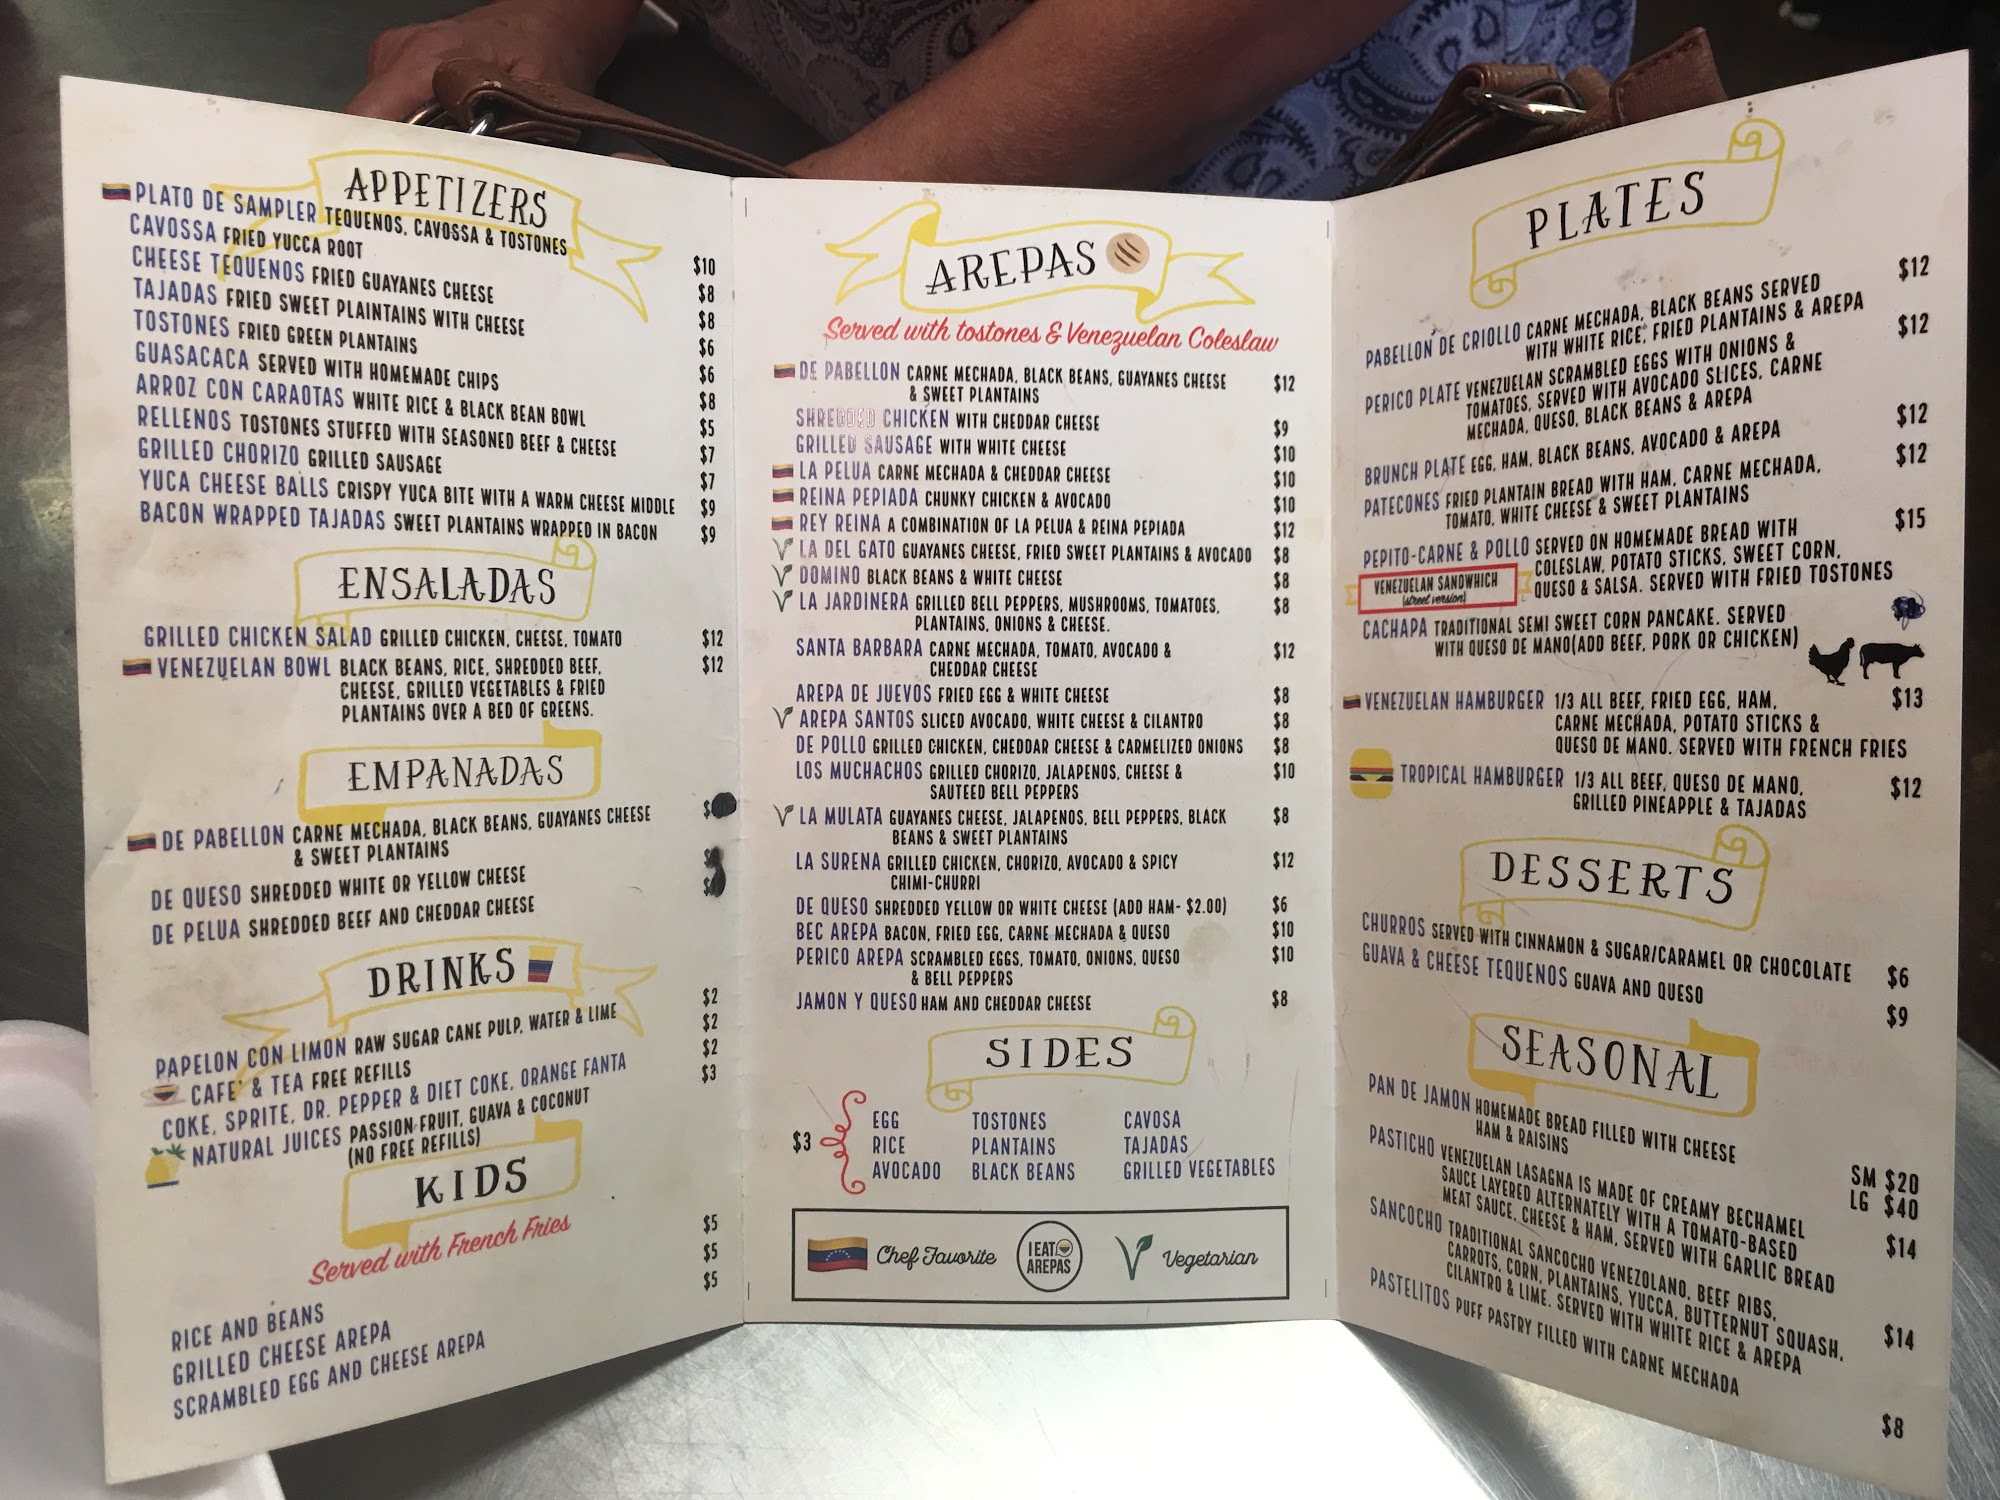 APPETIZERS
PLATO DE SAMPLER TEQUENOS, CAVOSSA & TOSTONES $10
CAVOSSA FRIED YUCCA ROOT $8
CHEESE TEQUENOS FRIED GUAYANES CHEESE $8
TAJADAS FRIED SWEET PLAINTAINS WITH CHEESE $6
TOSTONES FRIED GREEN PLANTAINS $6
GUASACACA SERVED WITH HOMEMADE CHIPS $8
ARROZ CON CARAOTAS WHITE RICE & BLACK BEAN BOWL $5
RELLENOS TOSTONES STUFFED WITH SEASONED BEEF & CHEESE $7
GRILLED CHORIZO GRILLED SAUSAGE $7
YUCA CHEESE BALLS CRISPY YUCA BITE WITH A WARM CHEESE MIDDLE $9
BACON WRAPPED TAJADAS SWEET PLANTAINS WRAPPED IN BACON $9
ENSALADAS
GRILLED CHICKEN SALAD GRILLED CHICKEN, CHEESE, TOMATO $12
VENEZUELAN BOWL BLACK BEANS, RICE, SHREDDED BEEF, $12
CHEESE, GRILLED VEGETABLES & FRIED
PLANTAINS OVER A BED OF GREENS.
EMPANADAS
DE PABELLON CARNE MECHADA, BLACK BEANS, GUAYANES CHEESE
& SWEET PLANTAINS
DE QUESO SHREDDED WHITE OR YELLOW CHEESE
DE PELUA SHREDDED BEEF AND CHEDDAR CHEESE
DRINKS
PAPELON CON LIMON RAW SUGAR CANE PULP, WATER & LIME $2
CAFE' & TEA FREE REFILLS $2
COKE, SPRITE, DR. PEPPER & DIET COKE, ORANGE FANTA $2
NATURAL JUICES PASSION FRUIT, GUAVA & COCONUT $3
(NO FREE REFILLS)
KIDS
Served with French Fries
RICE AND BEANS $5
GRILLED CHEESE AREPA $5
SCRAMBLED EGG AND CHEESE AREPA $5
AREPAS
Served with tostones & Venezuelan Coleslaw
DE PABELLON CARNE MECHADA, BLACK BEANS, GUAYANES CHEESE $12
& SWEET PLANTAINS
SHREDDED CHICKEN WITH CHEDDAR CHEESE $9
GRILLED SAUSAGE WITH WHITE CHEESE $10
LA PELUA CARNE MECHADA & CHEDDAR CHEESE $10
REINA PEPIADA CHUNKY CHICKEN & AVOCADO $10
REY REINA A COMBINATION OF LA PELUA & REINA PEPIADA $12
LA DEL GATO GUAYANES CHEESE, FRIED SWEET PLANTAINS & AVOCADO $8
DOMINO BLACK BEANS & WHITE CHEESE $8
LA JARDINERA GRILLED BELL PEPPERS, MUSHROOMS, TOMATOES, $8
PLANTAINS, ONIONS & CHEESE.
SANTA BARBARA CARNE MECHADA, TOMATO, AVOCADO & $12
CHEDDAR CHEESE
AREPA DE JUEVOS FRIED EGG & WHITE CHEESE $8
AREPA SANTOS SLICED AVOCADO, WHITE CHEESE & CILANTRO $8
DE POLLO GRILLED CHICKEN, CHEDDAR CHEESE & CARMELIZED ONIONS $8
LOS MUCHACHOS GRILLED CHORIZO, JALAPENOS, CHEESE & $10
SAUTEED BELL PEPPERS
LA MULATA GUAYANES CHEESE, JALAPENOS, BELL PEPPERS, BLACK $8
BEANS & SWEET PLANTAINS
LA SURENA GRILLED CHICKEN, CHORIZO, AVOCADO & SPICY $12
CHIMI-CHURRI
DE QUESO SHREDDED YELLOW OR WHITE CHEESE (ADD HAM- $2.00) $6
BEC AREPA BACON, FRIED EGG, CARNE MECHADA & QUESO $10
PERICO AREPA SCRAMBLED EGGS, TOMATO, ONIONS, QUESO $10
& BELL PEPPERS
JAMON Y QUESO HAM AND CHEDDAR CHEESE $8
SIDES
EGG TOSTONES CAVOSA
$3 RICE PLANTAINS TAJADAS
AVOCADO BLACK BEANS GRILLED VEGETABLES
Chef Favorite I EAT AREPAS Vegetarian
PLATES
PABELLON DE CRIOLLO CARNE MECHADA, BLACK BEANS SERVED $12
WITH WHITE RICE, FRIED PLANTAINS & AREPA
PERICO PLATE VENEZUELAN SCRAMBLED EGGS WITH ONIONS & $12
TOMATOES, SERVED WITH AVOCADO SLICES, CARNE
MECHADA, QUESO, BLACK BEANS & AREPA
BRUNCH PLATE EGG, HAM, BLACK BEANS, AVOCADO & AREPA $12
PATECONES FRIED PLANTAIN BREAD WITH HAM, CARNE MECHADA, $12
TOMATO, WHITE CHEESE & SWEET PLANTAINS
PEPITO-CARNE & POLLO SERVED ON HOMEMADE BREAD WITH $15
COLESLAW, POTATO STICKS, SWEET CORN,
VENEZUELAN SANDWHICH QUESO & SALSA. SERVED WITH FRIED TOSTONES
(street version)
CACHAPA TRADITIONAL SEMI SWEET CORN PANCAKE. SERVED
WITH QUESO DE MANO(ADD BEEF, PORK OR CHICKEN)
VENEZUELAN HAMBURGER 1/3 ALL BEEF, FRIED EGG, HAM, $13
CARNE MECHADA, POTATO STICKS &
QUESO DE MANO. SERVED WITH FRENCH FRIES
TROPICAL HAMBURGER 1/3 ALL BEEF, QUESO DE MANO, $12
GRILLED PINEAPPLE & TAJADAS
DESSERTS
CHURROS SERVED WITH CINNAMON & SUGAR/CARAMEL OR CHOCOLATE $6
GUAVA & CHEESE TEQUENOS GUAVA AND QUESO $9
SEASONAL
PAN DE JAMON HOMEMADE BREAD FILLED WITH CHEESE SM $20
HAM & RAISINS LG $40
PASTICHO VENEZUELAN LASAGNA IS MADE OF CREAMY BECHAMEL $14
SAUCE LAYERED ALTERNATELY WITH A TOMATO-BASED
MEAT SAUCE, CHEESE & HAM, SERVED WITH GARLIC BREAD
SANCOCHO TRADITIONAL SANCOCHO VENEZOLANO. BEEF RIBS, $14
CARROTS, CORN, PLANTAINS, YUCCA, BUTTERNUT SQUASH,
CILANTRO & LIME. SERVED WITH WHITE RICE & AREPA
PASTELITOS PUFF PASTRY FILLED WITH CARNE MECHADA $8